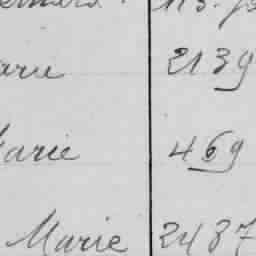 arie 2139
Marie 469
Marie 2487